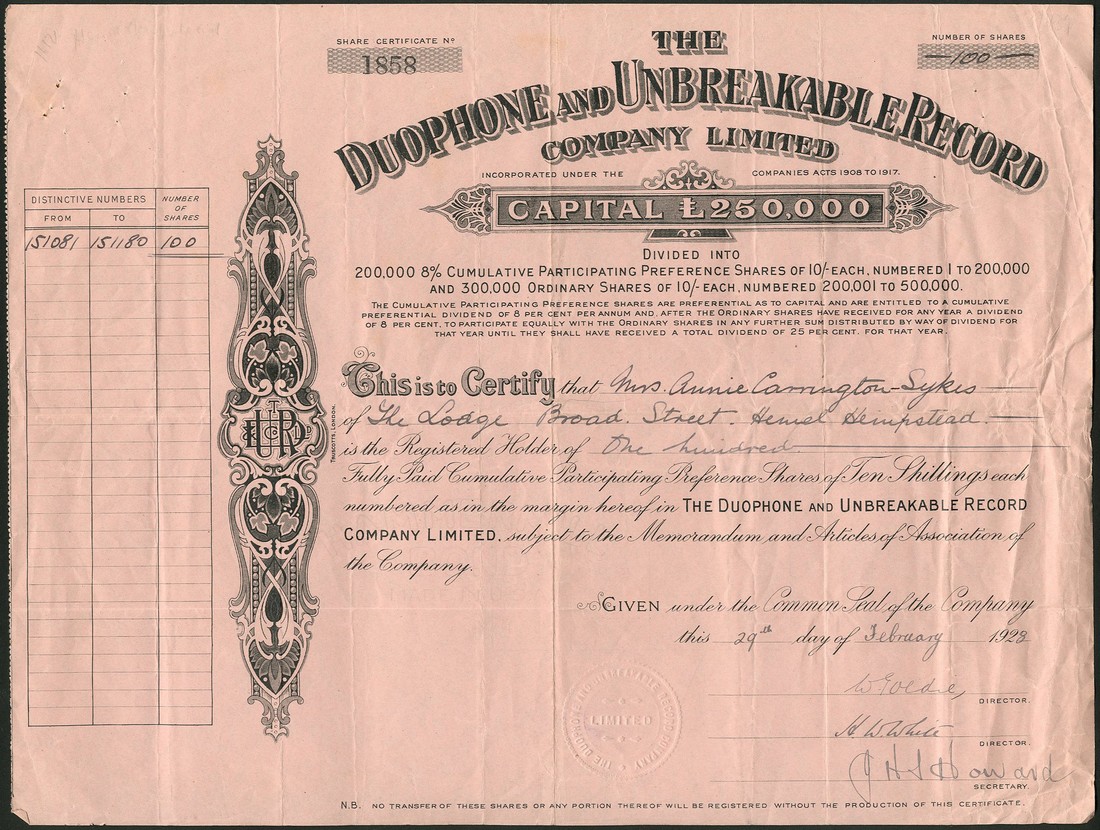 SHARE CERTIFICATE Nº
1858
NUMBER OF SHARES
100
THE
DUOPHONE AND UNBREAKABLE RECORD
COMPANY LIMITED
INCORPORATED UNDER THE COMPANIES ACTS 1908 TO 1917.
CAPITAL £250,000
DIVIDED INTO
200,000 8% CUMULATIVE PARTICIPATING PREFERENCE SHARES OF 10/- EACH, NUMBERED 1 TO 200,000
AND 300,000 ORDINARY SHARES OF 10/- EACH, NUMBERED 200,001 TO 500,000.
THE CUMULATIVE PARTICIPATING PREFERENCE SHARES ARE PREFERENTIAL AS TO CAPITAL AND ARE ENTITLED TO A CUMULATIVE
PREFERENTIAL DIVIDEND OF 8 PER CENT PER ANNUM AND, AFTER THE ORDINARY SHARES HAVE RECEIVED FOR ANY YEAR A DIVIDEND
OF 8 PER CENT, TO PARTICIPATE EQUALLY WITH THE ORDINARY SHARES IN ANY FURTHER SUM DISTRIBUTED BY WAY OF DIVIDEND FOR
THAT YEAR UNTIL THEY SHALL HAVE RECEIVED A TOTAL DIVIDEND OF 25 PER CENT. FOR THAT YEAR.
DISTINCTIVE NUMBERS NUMBER OF SHARES
FROM TO
151081 151180 100
TRUSCOTTS, LONDON.
This is to Certify that Mrs. Annie Carrington-Sykes
of The Lodge Broad. Street. Hemel Hempstead.
is the Registered Holder of One hundred
Fully Paid Cumulative Participating Preference Shares of Ten Shillings each
numbered as in the margin hereof in THE DUOPHONE AND UNBREAKABLE RECORD
COMPANY LIMITED, subject to the Memorandum and Articles of Association of
the Company.
GIVEN under the Common Seal of the Company
this 29th day of February 1928
W Goldie,
DIRECTOR.
H W White
DIRECTOR.
J H S Howard
SECRETARY.
THE DUOPHONE AND UNBREAKABLE RECORD COMPANY
LIMITED
N.B. NO TRANSFER OF THESE SHARES OR ANY PORTION THEREOF WILL BE REGISTERED WITHOUT THE PRODUCTION OF THIS CERTIFICATE.